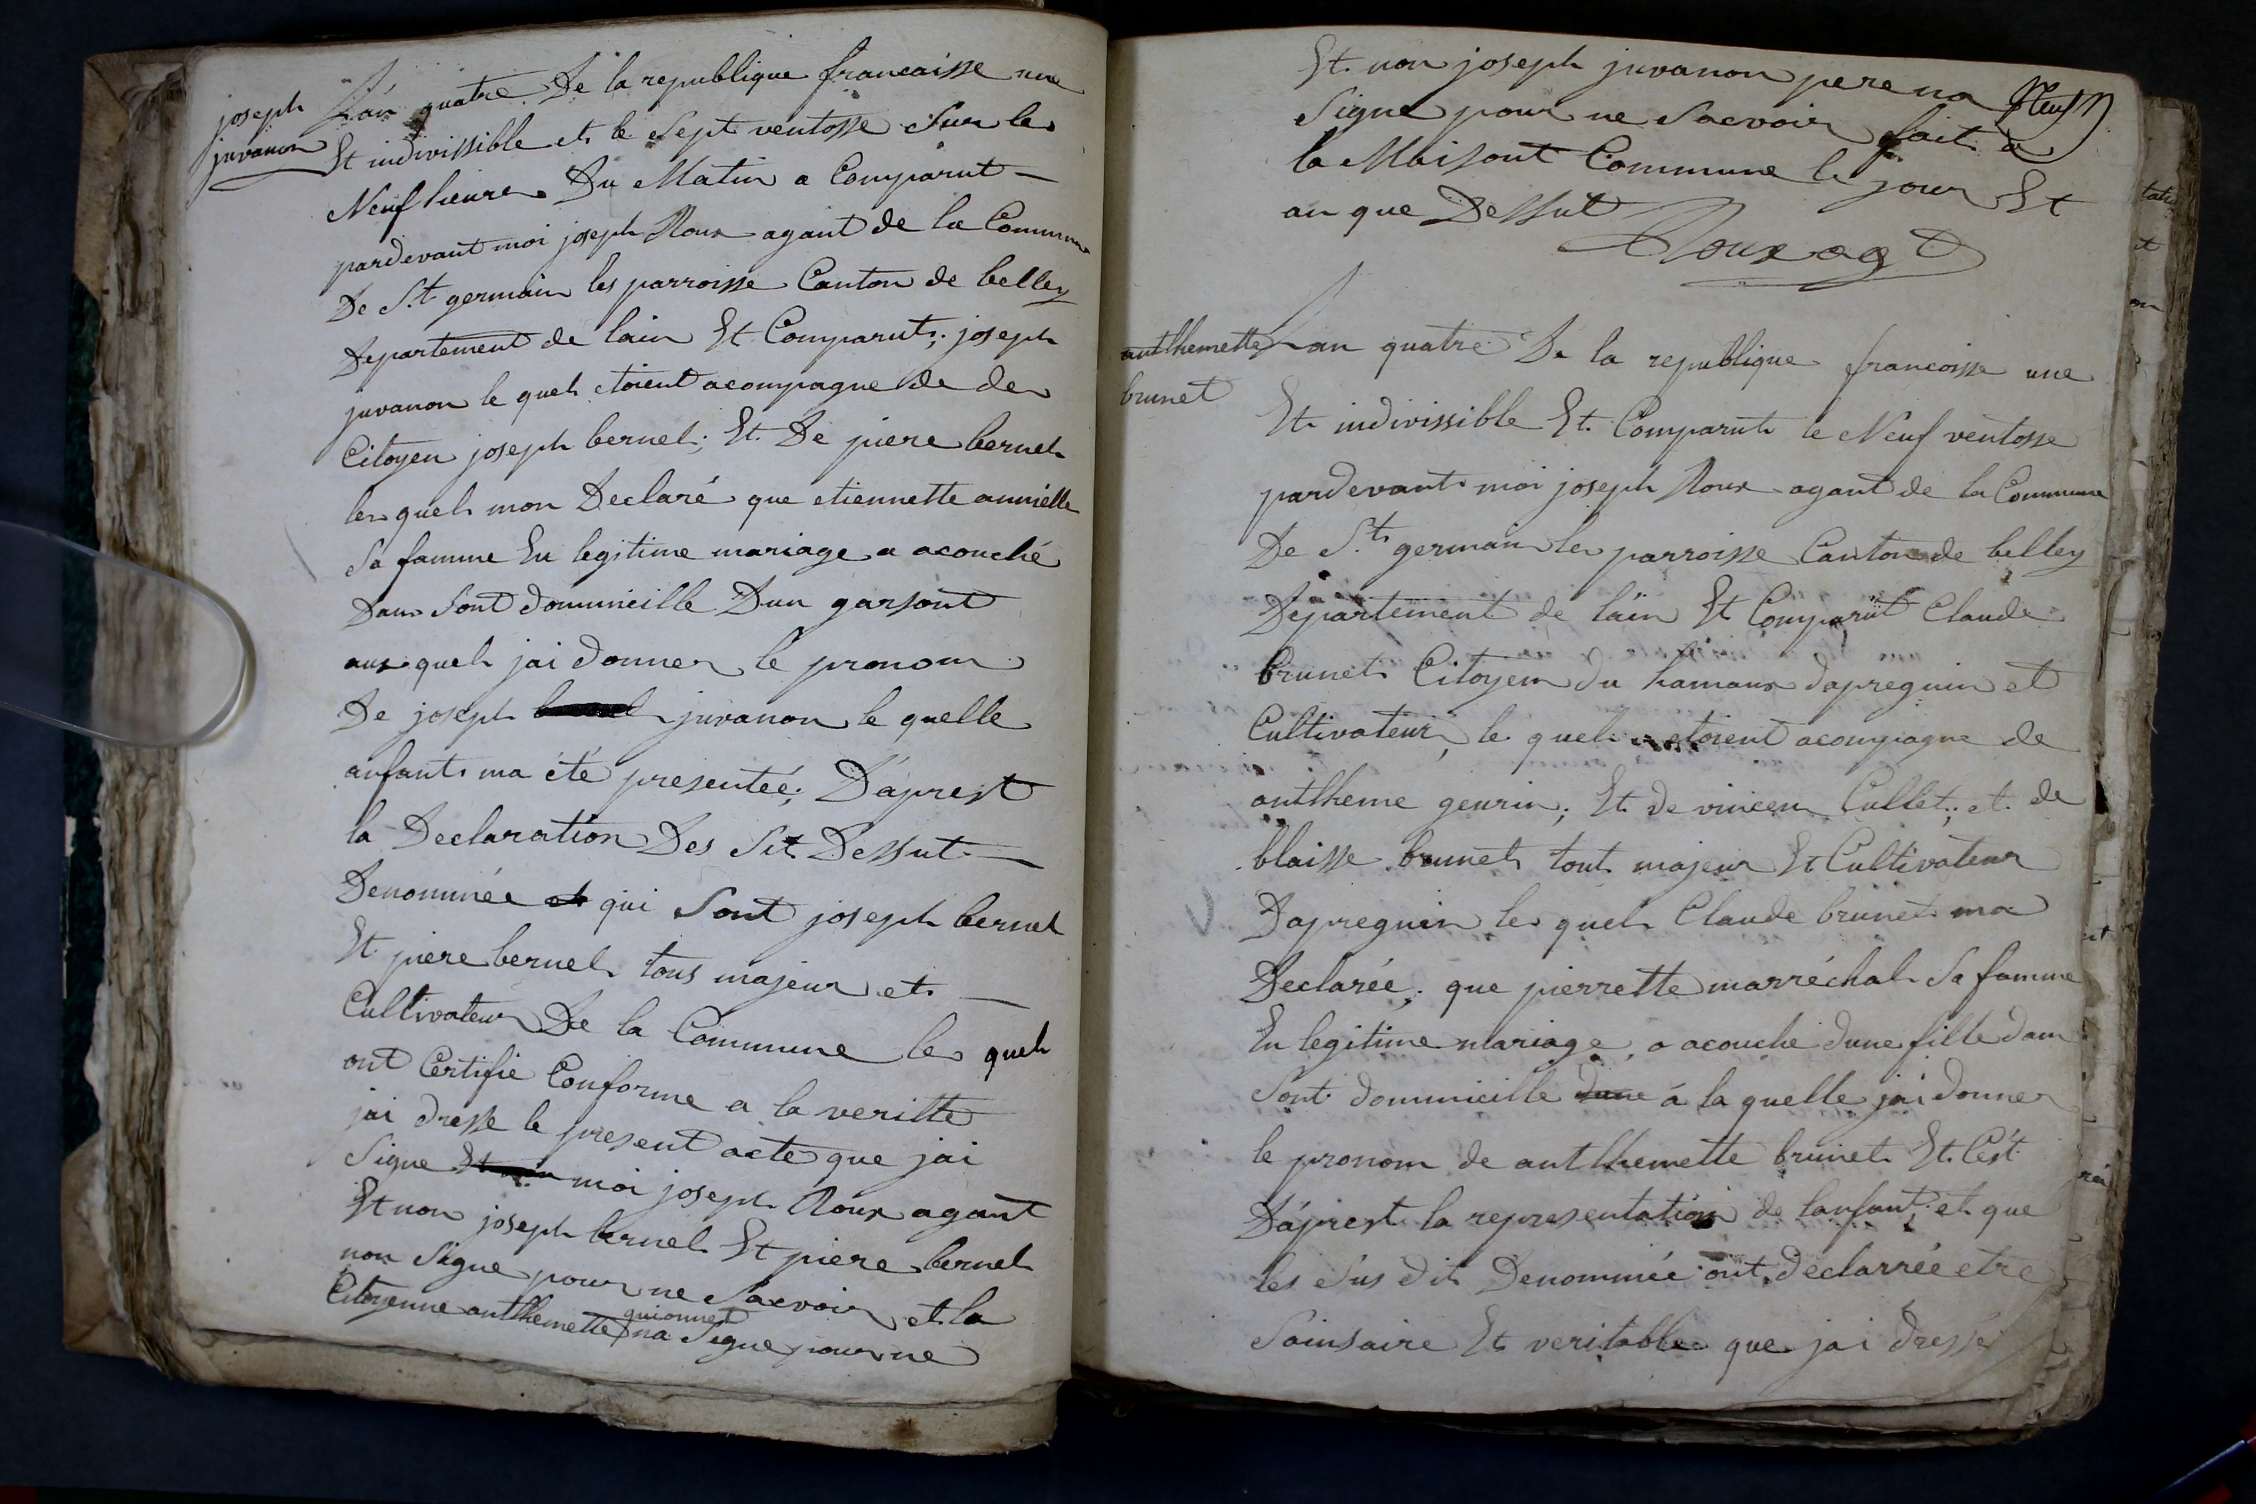 joseph
juvanon
Lán quatre De la republique francaisse une
Et indivissible et le Sept ventosse Sur les
Neuf heures Du Matin a Comparut —
pardevant moi joseph Roux agant de la Commune
De S.t germain les parroisse Canton de belley
Departement de lain Et Comparut; joseph
juvanon le quel etoient acompagne de des
Citoyen joseph bernel; Et De piere bernel
les quel mon Declaré que etiennette
Sa famme En legitime mariage a acouché
Dans Sont dommicille Dun garsont
aux quel jai donner le pronom
De joseph juvanon le quelle
anfant ma été presenteé; Dáprest
la Declaration Des Sit Dessut —
Denomineé et qui Sont joseph bernel
Et piere bernel tous majeur et —
Cultivateur De la Commune les quel
ont Certifie Conforme a la veritte
jai dresse le present acte que jai
Signe moi joseph Roux agant
Et non joseph bernel Et piere bernel
non Signe pour ne Sacvoir et la
guionnet
Citoyenne anthemette na Signe pour ne
Neuf
Et non joseph juvanon pere na
Signe pour ne Sacvoir fait a
la Maisont Commune le jour Et
an que Dessut
Roux agt
antlhemette
brunet
Lan quatre De la republique francoisse une
Et indivissible Et Comparut le Neuf ventosse
pardevant moi joseph Roux agant de la Commune
De S.t germain les parroisse Canton de belley
Departement de láin Et Comparut Claude
brunet Citoyen du hamaux dapregnin et
Cultivateur, le quel etoient acompagne de
antlheme geurin; Et de vincen Cullet; et de
blaisse brunet tout majeur Et Cultivateur
Dapregnin les quel Claude brunet ma
Declarée; que pierrette marréchal Sa famme
En legitime mariage, a acouche dune fille dans
Sont dommicille dune á la quelle jai donner
le pronom de antlhemette brunet Et Cést
Dáprest la representation de lanfant; et que
les Sus dit Denommée ont declarrée etre
Sainsaire Et veritable que jai dressé